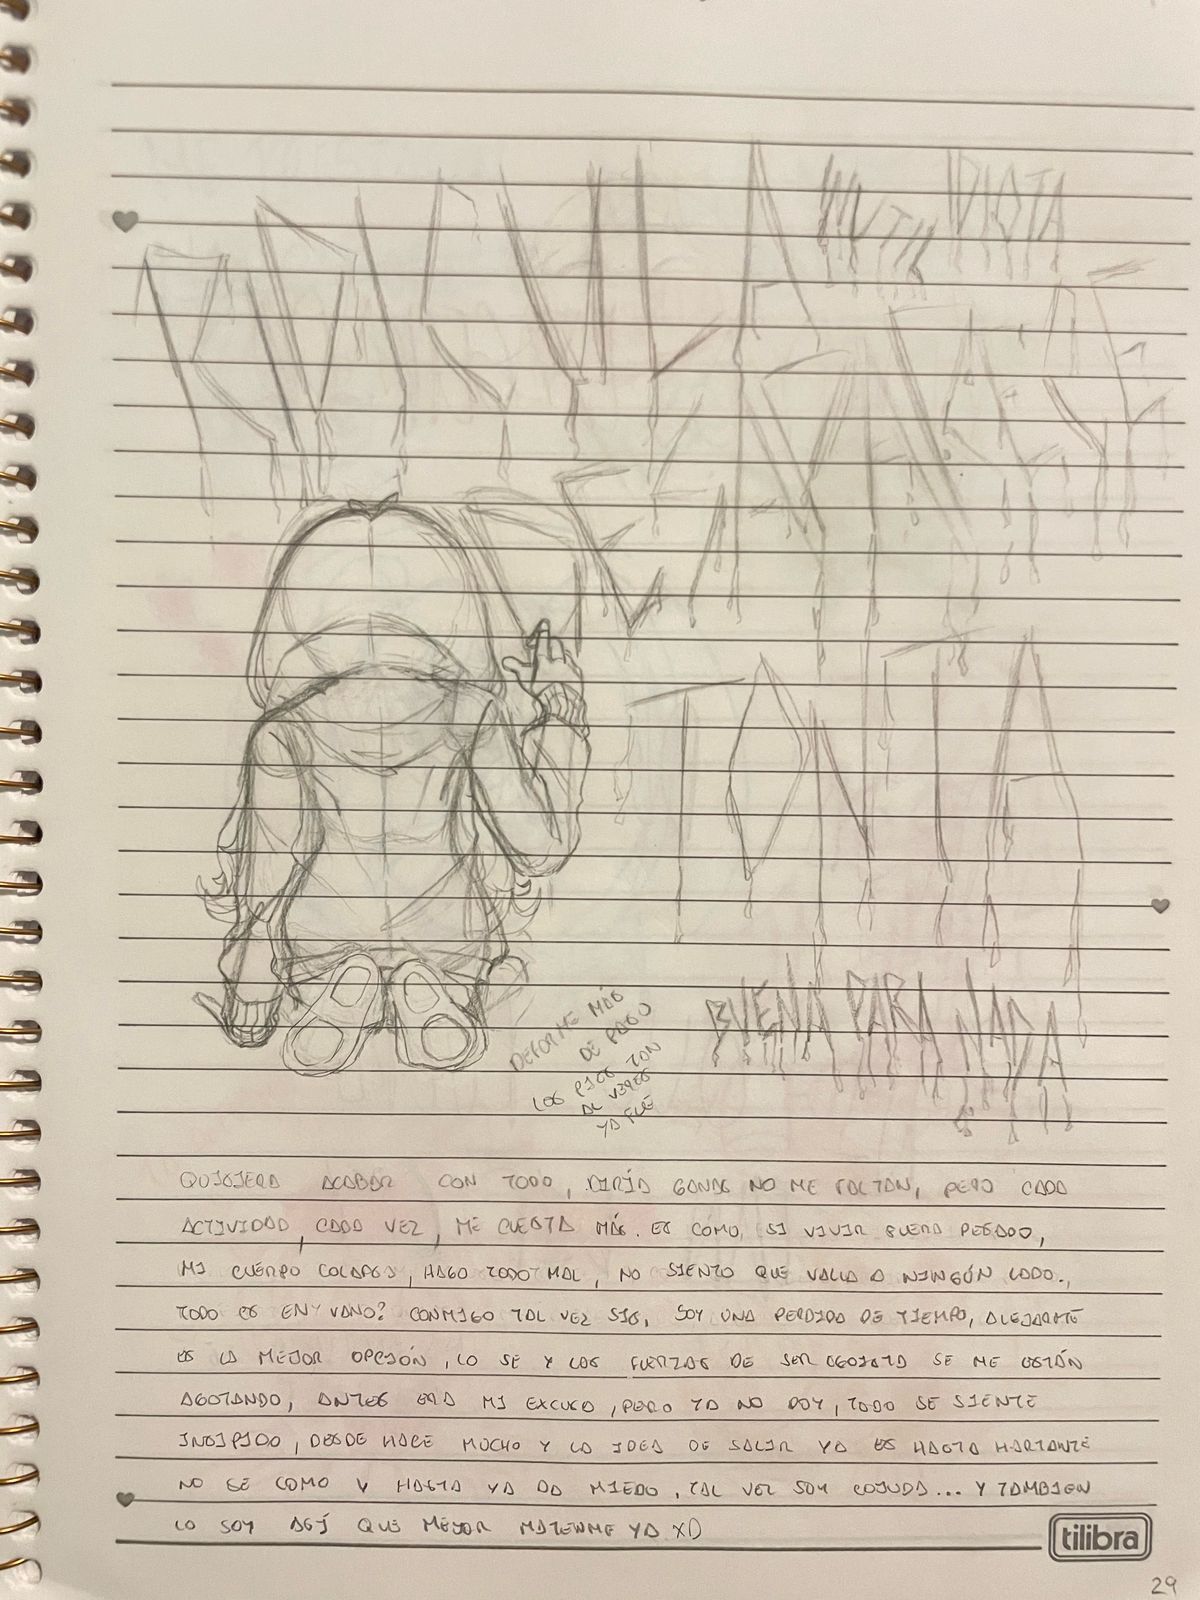 INUTIL IDIOTA
RIDICULA
TONTA
BUENA PARA NADA
DEFORME MÁS
DE PASO
LOS PIES TON
AL VERGS
YA FUE
QUISIERA ACABAR CON TODO, DIRÍA GANAS NO ME FALTAN, PERO CADA
ACTIVIDAD, CADA VEZ, ME CUESTA MÁS. ES CÓMO SI VIVIR FUERA PESADO,
MI CUERPO COLAPSA, HAGO TODO MAL, NO SIENTO QUE VALLA A NINGÚN LADO.,
TODO ES EN VANO? CONMIGO TAL VEZ SIS, SOY UNA PERDIDA DE TIEMPO, ALEJARME
ES LA MEJOR OPCIÓN, LO SE Y LAS FUERZAS DE SER EGOISTA SE ME ESTÁN
AGOTANDO, ANTES ERA MI EXCUSA, PERO YA NO DOY, TODO SE SIENTE
INSIPIDO, DESDE HACE MUCHO Y LA IDEA DE SALIR YA ES HASTA HARTANTE
NO SE COMO Y HASTA YA DA MIEDO, TAL VEZ SOY COJUDA... Y TAMBIEN
LO SOY ASÍ QUE MEJOR MATENME YA XD
tilibra
29